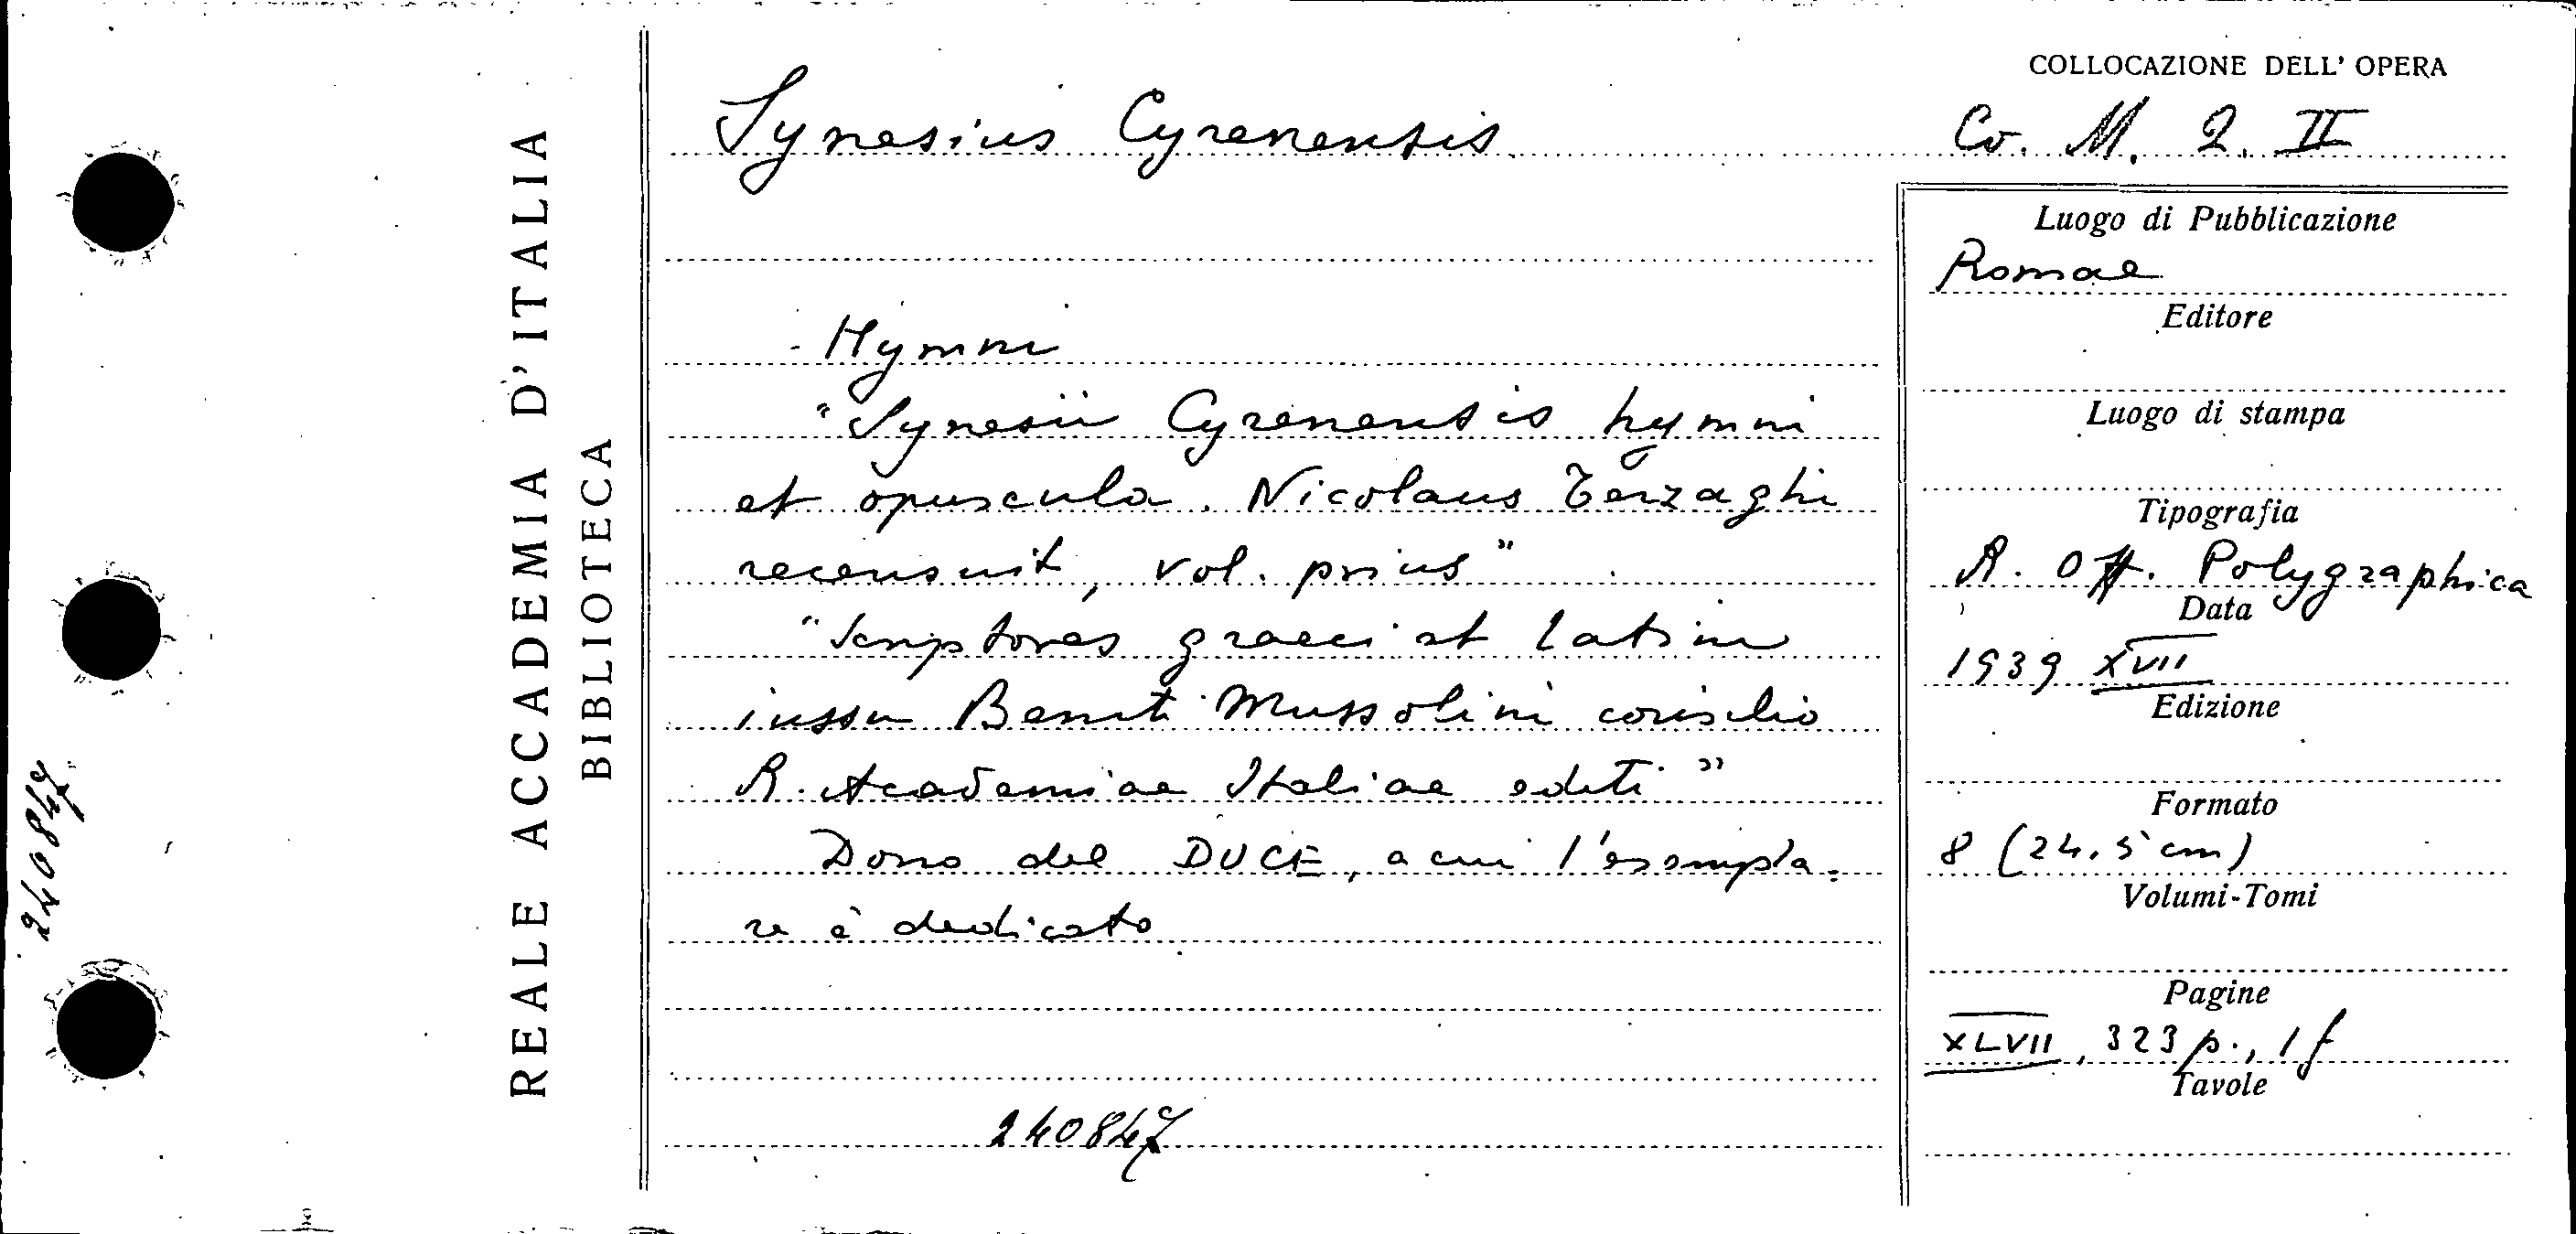 REALE ACCADEMIA D'ITALIA
BIBLIOTECA
240847
Synesius Cyrenensis
Hymni
"Synesii Cyrenensis hymni
et opuscula. Nicolaus Terzaghi
recensuit, vol. prius"
"Scriptores graeci et latini
iussu Beniti Mussolini consilio
R. Academiae Italiae editi"
Dono del DUCE, a cui l'esempla=
re è dedicato
240847
COLLOCAZIONE DELL' OPERA
Co. M. 2. II
Luogo di Pubblicazione
Romae
Editore
Luogo di stampa
Tipografia
R. Off. Polygraphica
Data
1939 XVII
Edizione
Formato
8 (24.5 cm)
Volumi-Tomi
Pagine
XLVII, 323 p., 1 f
Tavole